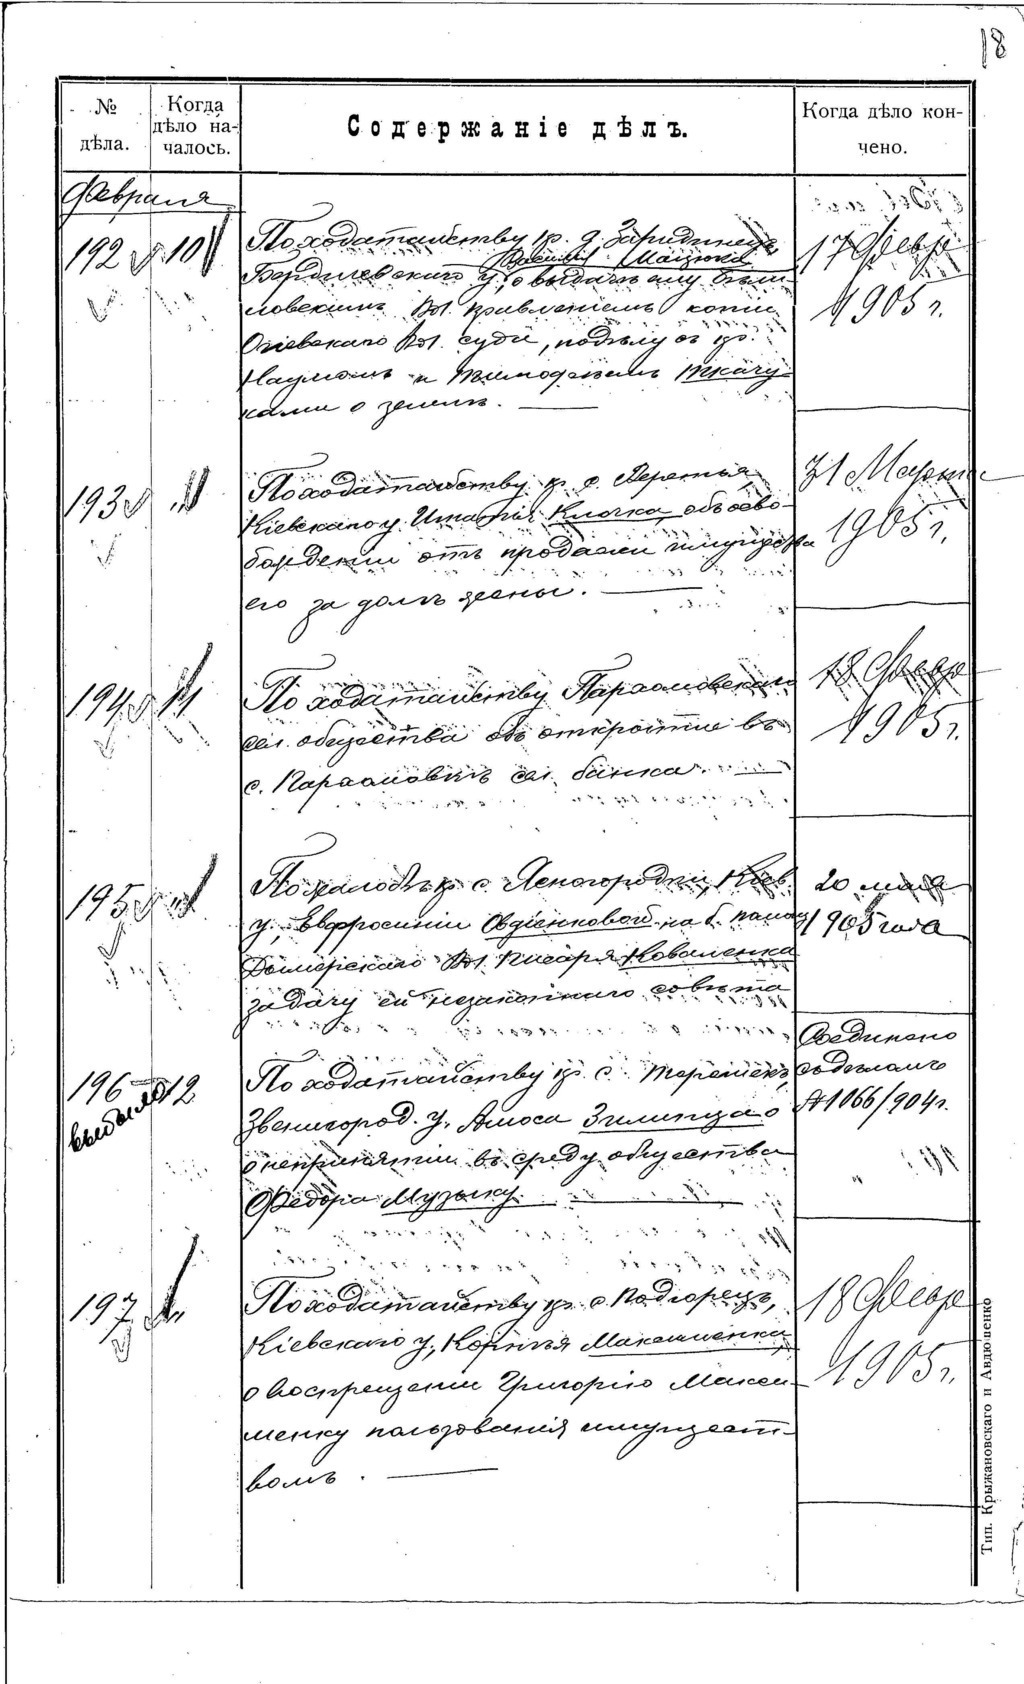 18
№ дѣла.
Когда дѣло началось.
Содержаніе дѣлъ.
Когда дѣло кончено.
Февраля
192 10
По ходатайству кр. д.
Бердичевскаго у., о выдачѣ ему
ловскимъ Вол. правленіемъ копіи
Вол. суда, по дѣлу съ кр.
Наумомъ и Тимофеемъ Ткачу-
ками о землѣ.
17 Февр
1905 г.
193
По ходатайству кр. с.
Кіевскаго у. Игнатія Клочка, объ осво-
божденіи отъ продажи имущества
его за долгъ жены.
31 Марта
1905 г.
194 11
По ходатайству
сел. общества объ открытіи въ
с. сел. банка.
18 Февр
1905 г.
195
По жалобѣ кр. с. Ясногородки, Кіев.
у., Евфросиніи Овдіенковой на б. помощ
Дымерскаго Вол. писаря Коваленка
за дачу ей незаконнаго совѣта
20 мая
1905 года
196 12
выдано
По ходатайству кр. с.
Звенигород. у., Амоса
о непринятіи въ среду общества
Федора Музыку.
Соединено
съ дѣломъ
№ 1066/904 г.
197
По ходатайству кр. с. Подгорецъ,
Кіевскаго у., Корнѣя Максименка,
о воспрещеніи Григорію Макси-
менку пользованія имущест-
вомъ.
18 Февр
1905 г.
Тип. Крыжановскаго и Авдюшенко